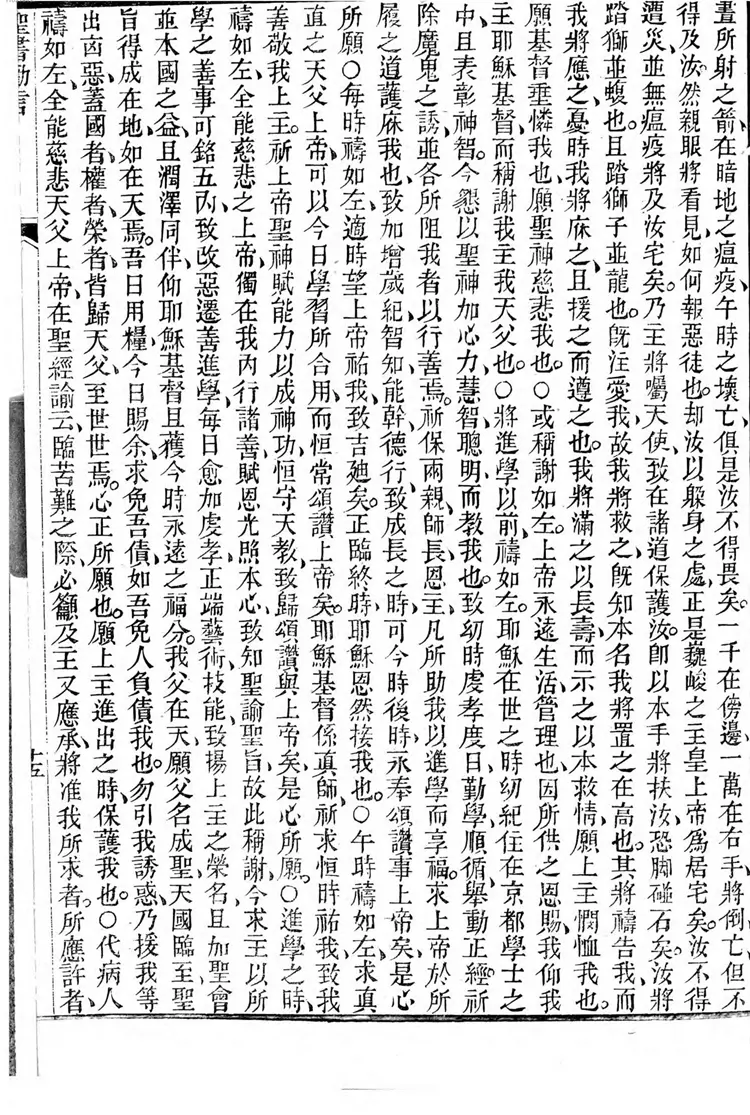 晝所射之箭在暗地之瘟疫午時之壞亡俱是汝不得畏矣一千在傍邊一萬在右手將倒亡但不
得及汝然親眼將看見如何報惡徒也却汝以躲身之處正是巍峻之主皇上帝爲居宅矣汝不得
遭災並無瘟疫將及汝宅矣乃主將囑天使致在諸道保護汝卽以本手將扶汝恐脚碰石矣汝將
踏獅並蝮也且踏獅子並龍也旣注愛我故我將救之旣知本名我將置之在高也其將禱告我而
我將應之憂時我將庥之且援之而遵之也我將滿之以長壽而示之以本救情願上主憫恤我也
願基督垂憐我也願聖神慈悲我也○或稱謝如左上帝永遠生活管理也因所供之恩賜我仰我
主耶穌基督而稱謝我主我天父也○將進學以前禱如左耶穌在世之時幼紀住在京都學士之
中且表彰神智今懇以聖神加心力慧智聰明而教我也致幼時虔孝度日勤學順循舉動正經祈
除魔鬼之誘並各所阻我者以行善焉祈保兩親師長恩主凡所助我以進學而享福求上帝於所
履之道護庥我也致加增歲紀智知能幹德行致成長之時可今時後時永奉頌讚事上帝矣是心
所願○每時禱如左適時望上帝祐我致吉廸矣正臨終時耶穌恩然接我也○午時禱如左求眞
直之天父上帝可以今日學習所合用而恒常頌讚上帝矣耶穌基督係眞師祈求恒時祐我致我
善敬我上主祈上帝聖神賦能力以成神功恒守天教致歸頌讚與上帝矣是心所願○進學之時
禱如左全能慈悲之上帝獨在我內行諸善賦恩光照本心致知聖諭聖旨故此稱謝今求主以所
學之善事可銘五內致改惡遷善進學每日愈加虔孝正端藝術技能致揚上主之榮名且加聖會
並本國之益且潤澤同伴仰耶穌基督且獲今時永遠之福分我父在天願父名成聖天國臨至聖
旨得成在地如在天焉吾日用糧今日賜余求免吾債如吾免人負債我也勿引我誘惑乃援我等
出凶惡蓋國者權者榮者皆歸天父至世世焉心正所願也願上主進出之時保護我也○代病人
禱如左全能慈悲天父上帝在聖經諭云臨苦難之際必籲及主又應承將准我所求者所應許者
聖書勸言
十五